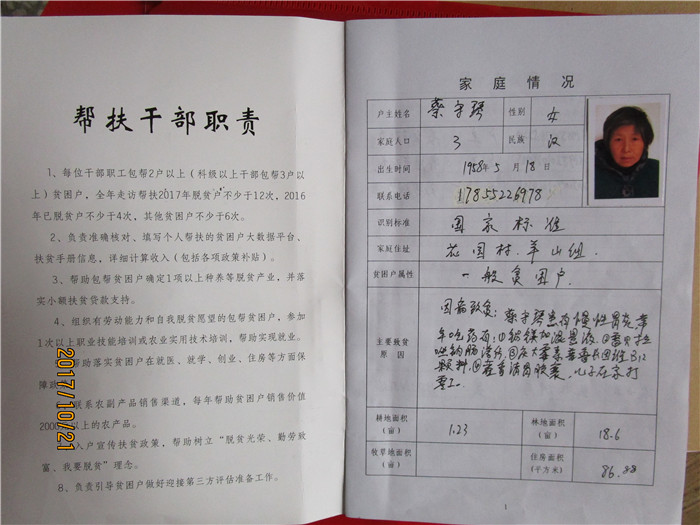 帮扶干部职责
1、每位干部职工包帮2户以上（科级以上干部包帮3户以
上）贫困户，全年走访帮扶2017年脱贫户不少于12次，2016
年已脱贫户不少于4次，其他贫困户不少于6次。
2、负责准确核对、填写个人帮扶的贫困户大数据平台、
扶贫手册信息，详细计算收入（包括各项政策补贴）。
3、帮助包帮贫困户确定1项以上种养等脱贫产业，并落
实小额扶贫贷款支持。
4、组织有劳动能力和自我脱贫愿望的包帮贫困户，参加
1次以上职业技能培训或农业实用技术培训，帮助实现就业。
帮助落实贫困户在就医、就学、创业、住房等方面保
障政
联系农副产品销售渠道，每年帮助贫困户销售价值
200 以上的农产品。
入户宣传扶贫政策，帮助树立“脱贫光荣、勤劳致
富、我要脱贫”理念。
8、负责引导贫困户做好迎接第三方评估准备工作。
2017/10/21
家庭情况
户主姓名 蔡守琴 性别 女
家庭人口 3 民族 汉
出生时间 1958年5月18日
联系电话 17855226978
识别标准 国家标准
家庭住址 花园村.羊山组.
贫困户属性 一般贫困户
主要致贫原因
因病致贫：蔡守琴患有慢性胃炎，常
年吃药有：
颗粒 胶囊，儿子在家打
零工.
耕地面积（亩） 1.23 林地面积（亩） 18.6
牧草地面积（亩） 住房面积（平方米） 86.88
1